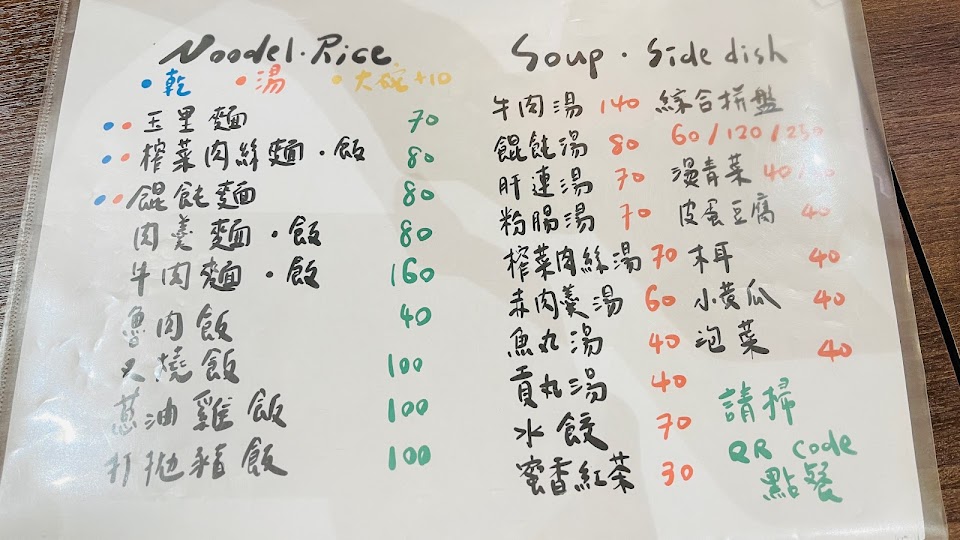 Noodel·Rice
•乾 •湯 •大碗+10
玉里麵 70
榨菜肉絲麵·飯 80
餛飩麵 80
肉羹麵·飯 80
牛肉麵·飯 160
魯肉飯 40
叉燒飯 100
蔥油雞飯 100
打拋豬飯 100
Soup·Side dish
牛肉湯 140
餛飩湯 80
肝連湯 70
粉腸湯 70
榨菜肉絲湯 70
赤肉羹湯 60
魚丸湯 40
貢丸湯 40
水餃 70
蜜香紅茶 30
綜合拼盤
60/120/230
燙青菜 40/
皮蛋豆腐 40
木耳 40
小黃瓜 40
泡菜 40
請掃
QR code
點餐